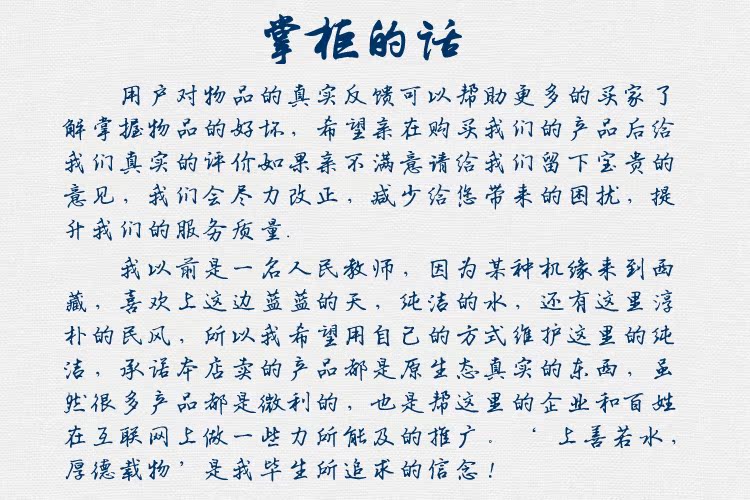 掌柜的话
用户对物品的真实反馈可以帮助更多的买家了
解掌握物品的好坏，希望亲在购买我们的产品后给
我们真实的评价如果亲不满意请给我们留下宝贵的
意见，我们会尽力改正，减少给您带来的困扰，提
升我们的服务质量.
我以前是一名人民教师，因为某种机缘来到西
藏，喜欢上这边蓝蓝的天，纯洁的水，还有这里淳
朴的民风，所以我希望用自己的方式维护这里的纯
洁，承诺本店卖的产品都是原生态真实的东西，虽
然很多产品都是微利的，也是帮这里的企业和百姓
在互联网上做一些力所能及的推广。‘上善若水，
厚德载物’是我毕生所追求的信念！